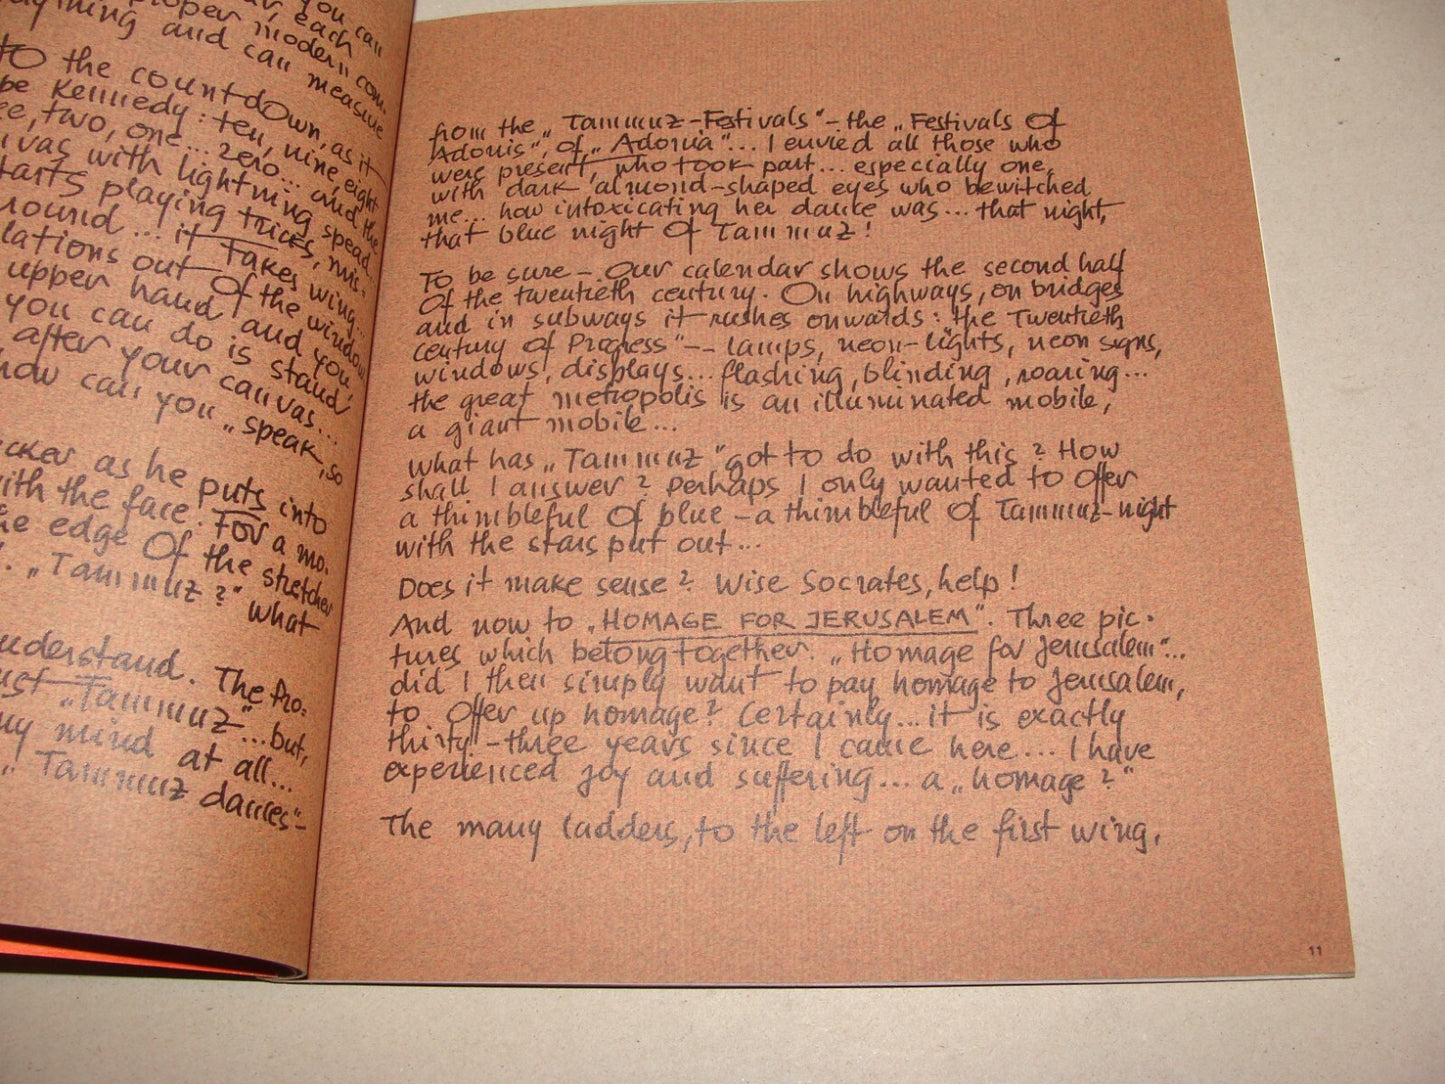 you can
each
proper modern com-
anything and can measure
to the countdown, as it
Kennedy: ten, nine, eight
two, one... zero... and the
with lightning speed
starts playing tricks, mis-
... it takes wing...
out of the window
upper hand and you
you can do is stand
after your canvas...
now can you „speak, so
as he puts into
with the face. For a mo-
the edge of the stretcher
„Tammuz?" what
understand. The Pro-
„Tammuz"... but,
my mind at all...
„Tammuz dances"-
from the „Tammuz-Festivals"- the „Festivals of
Adonis", of „Adonia"... I envied all those who
were present, who took part... especially one,
with dark almond-shaped eyes who bewitched
me... how intoxicating her dance was... that night,
that blue night of Tammuz!
To be sure - our calendar shows the second half
of the twentieth century. On highways, on bridges
and in subways it rushes onwards: „the Twentieth
century of Progress"-- lamps, neon-lights, neon signs,
windows, displays... flashing, blinding, roaring...
the great metropolis is an illuminated mobile,
a giant mobile...
what has „Tammuz" got to do with this? How
shall I answer? Perhaps I only wanted to offer
a thimbleful of blue - a thimbleful of Tammuz-night
with the stars put out...
Does it make sense? Wise Socrates, help!
And now to „HOMAGE FOR JERUSALEM". Three pic-
tures which belong together. „Homage for Jerusalem"...
did I then simply want to pay homage to Jerusalem,
to offer up homage? Certainly... it is exactly
thirty-three years since I came here... I have
experienced joy and suffering... a „homage?"
The many ladders, to the left on the first wing,
11